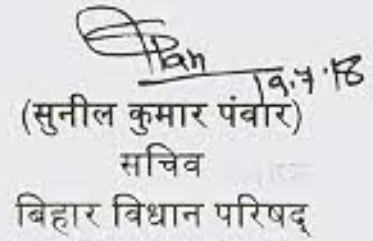 19.7.18
(सुनील कुमार पंवार)
सचिव
बिहार विधान परिषद्